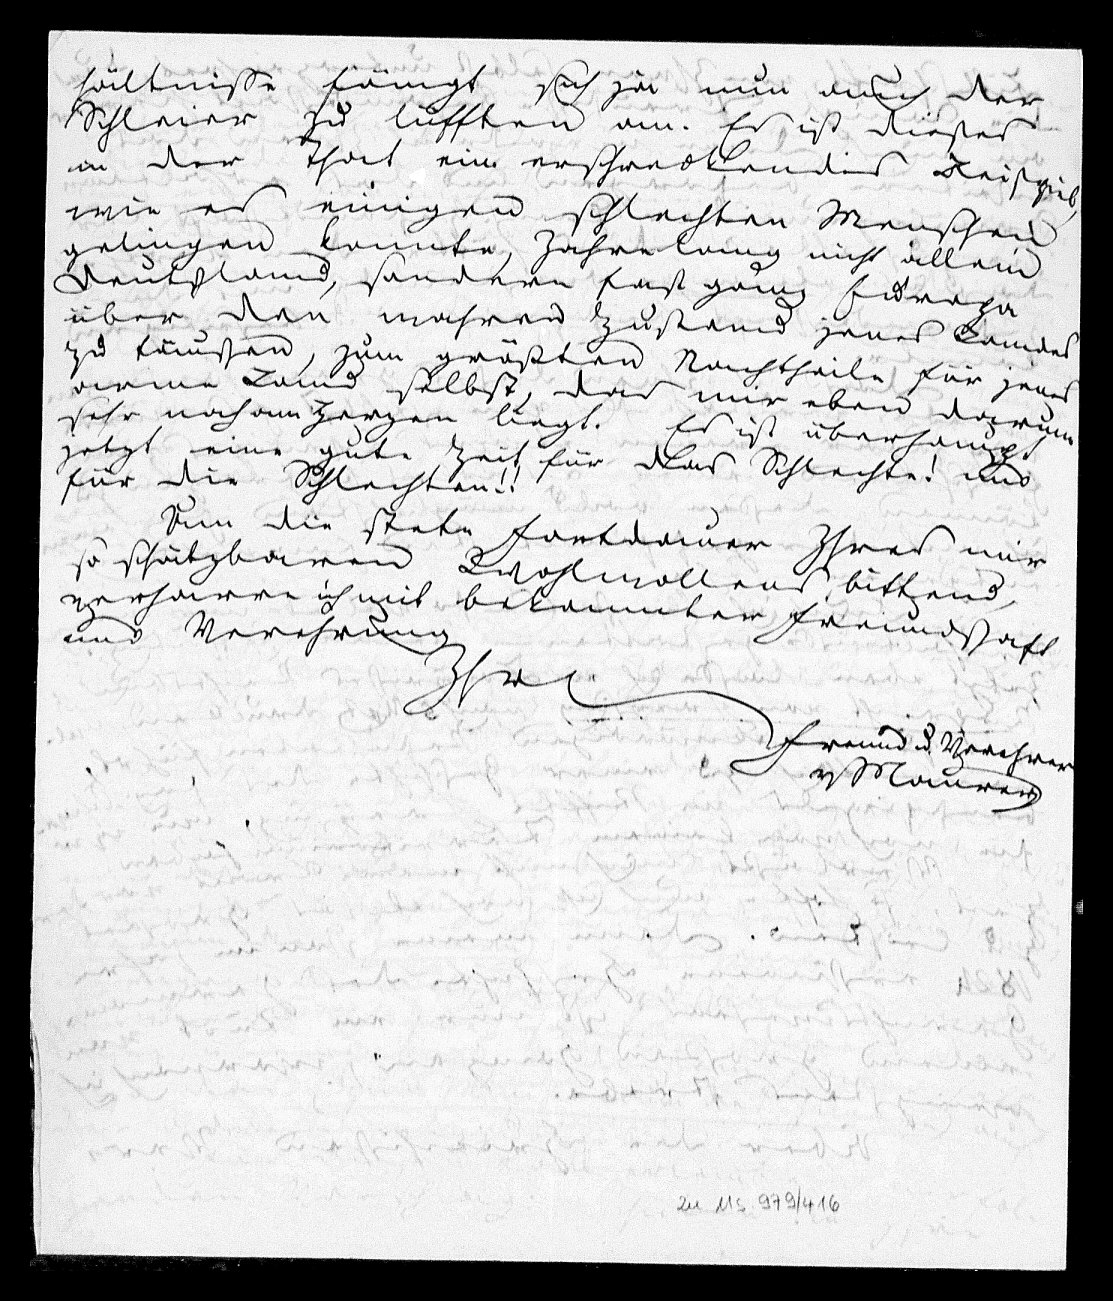 hältnisse fängt sich ja nun auch der
Schleier zu lüfften an. Es ist dieses
in der That ein erschreckendes Beispiel,
wie es einigen schlechten Menschen
gelingen konnte, Jahre lang nicht allein
Deutschland, sondern fast ganz Europa
über den wahren Zustand jenes Landes
zu täuschen, zum größten Nachtheile für jenes
arme Land selbst, das mir eben darum
sehr nah am Herzen liegt. Es ist überhaupt
jetzt eine gute Zeit für das Schlechte! und
für die Schlechten!!
Um die stete Fortdauer Ihres mir
so schätzbaren Wohlwollens bittend,
verharre ich mit bekannter Freundschaft
und Verehrung
Ihr
Freund u. Verehrer
v Maurer
zu Ms 979/416